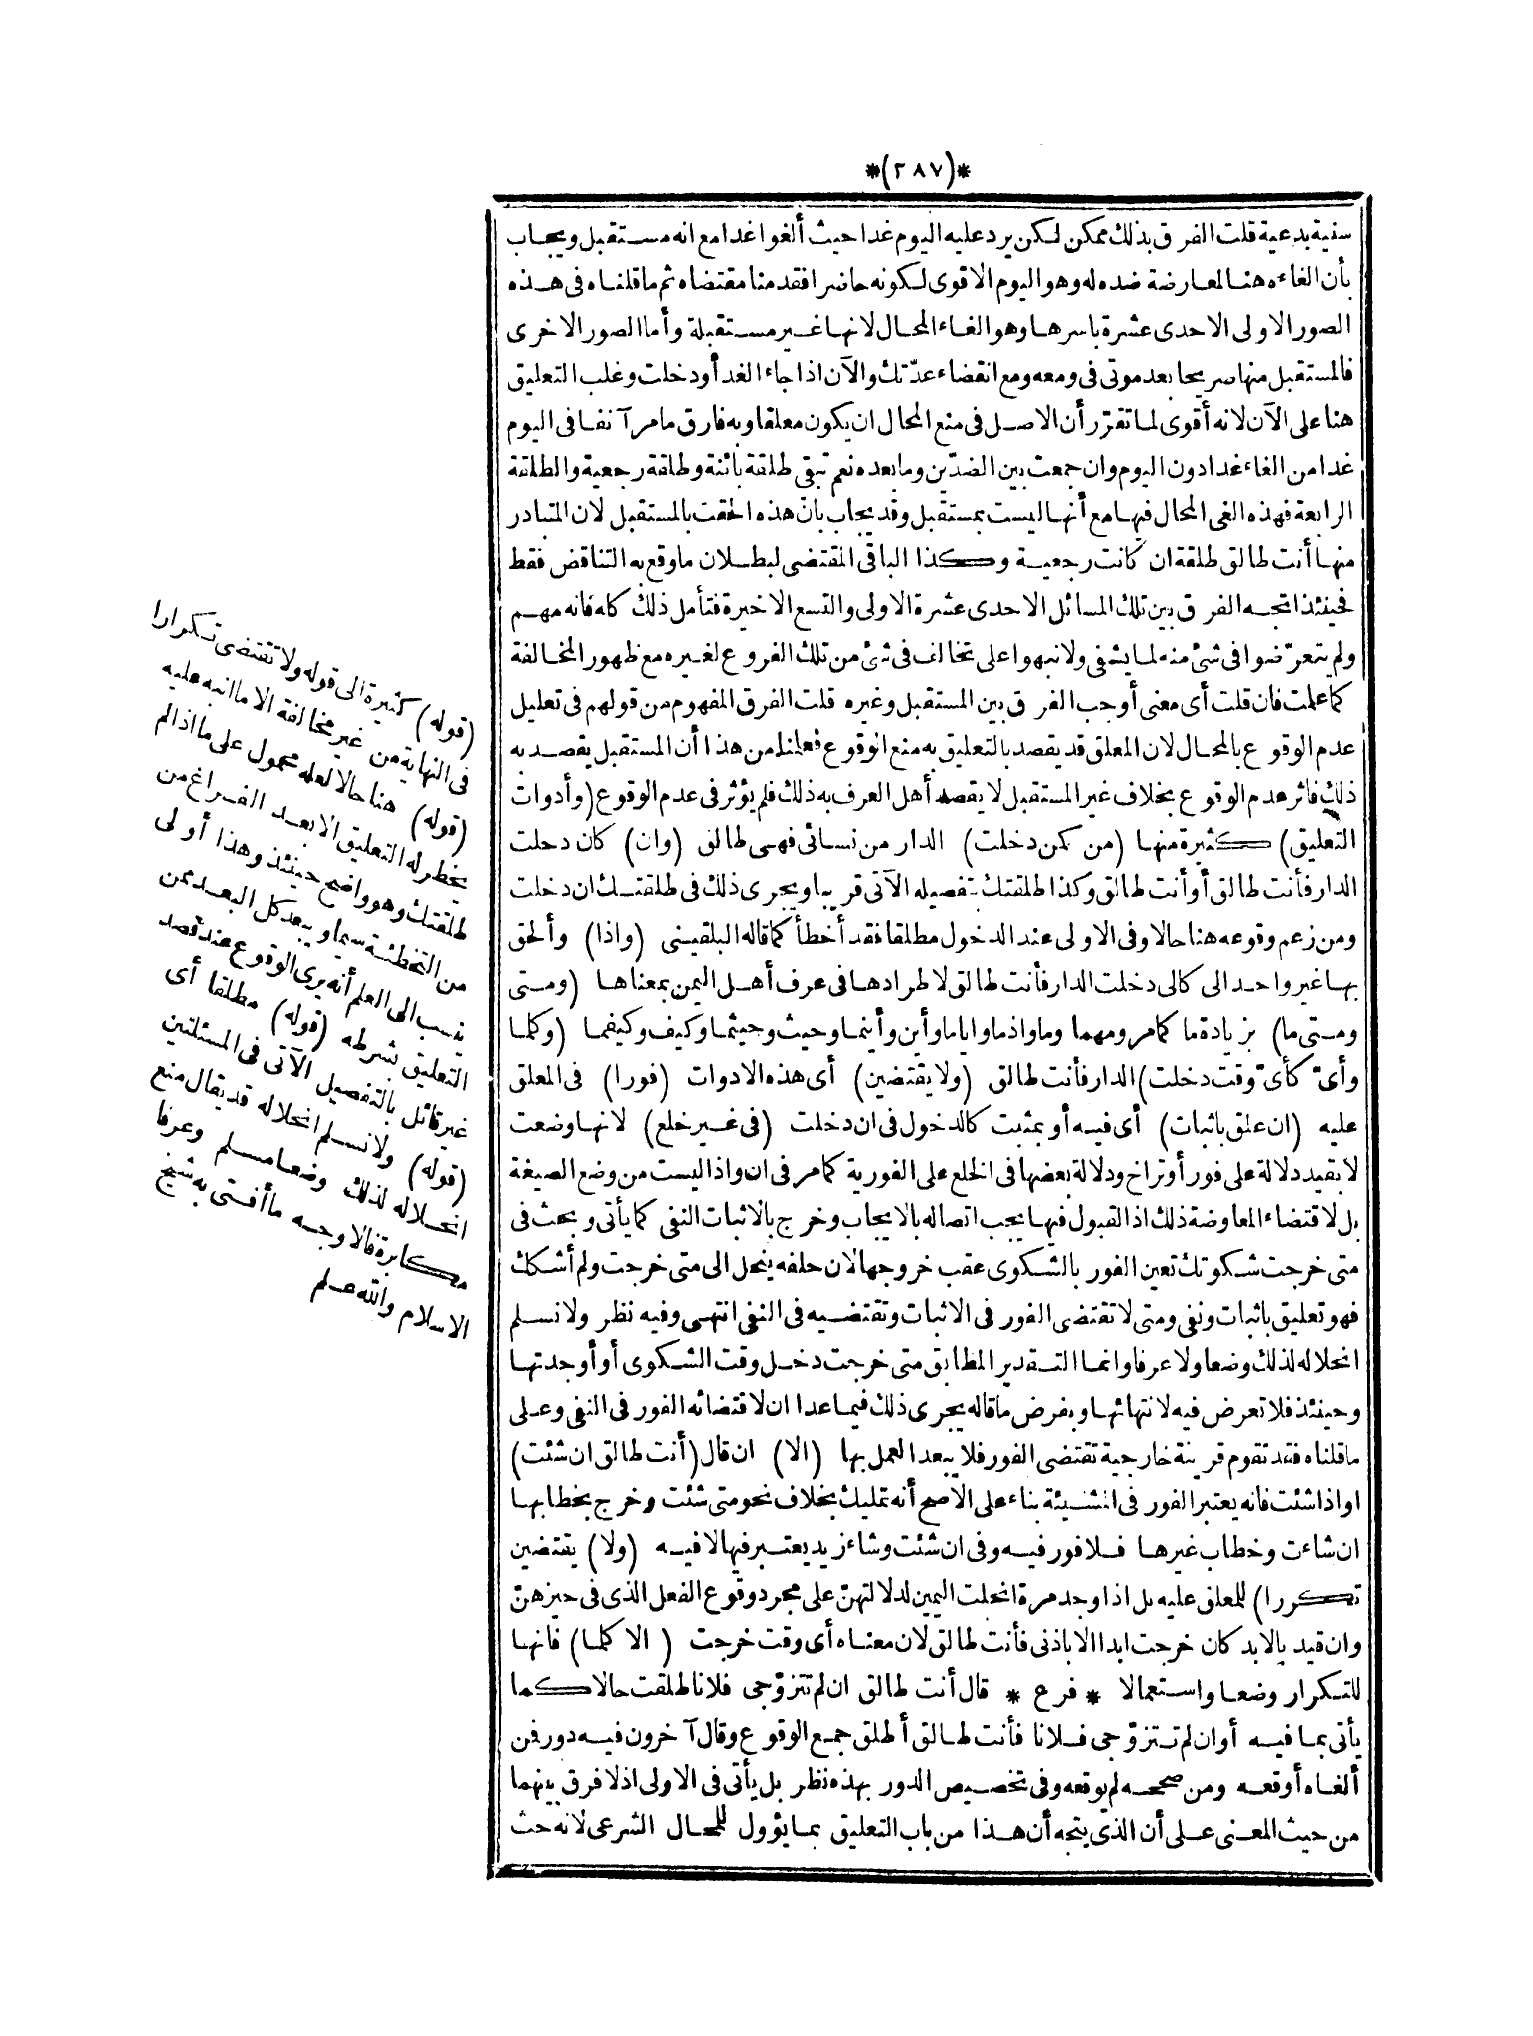 *(٢٨٧)*
سنية بدعية قلت الفرق بذلك ممكن لكن يرد عليه اليوم غدا حيث ألغوا غدا مع انه مستقبل ويجاب
بأن الغاءه هنا لمعارضة ضده له وهو اليوم الاقوى لكونه حاضرا فقدمنا مقتضاه ثم ما قلناه فى هذه
الصور الاولى الاحدى عشرة باسرها وهو الغاء المحال لانها غير مستقبلة وأما الصور الاخرى
فالمستقبل منها صريحا بعد موتى فى ومعه ومع انقضاء عدّتك والآن اذا جاء الغد أو دخلت وغلب التعليق
هنا على الآن لانه أقوى لما تقرّر أن الاصل فى منع المحال ان يكون معلقا وبه فارق ما مر آنفا فى اليوم
غدا من الغاء غدا دون اليوم وان جمعت بين الضدّين وما بعده نعم تبقى طلقة بائنة وطلقة رجعية والطلقة
الرابعة فهذه الغى المحال فيها مع أنها ليست بمستقبل وقد يجاب بانّ هذه الحقت بالمستقبل لان المتبادر
منها أنت طالق طلقة ان كانت رجعية وكذا الباقى المقتضى لبطلان ما وقع به التناقض فقط
فحينئذ اتجه الفرق بين تلك المسائل الاحدى عشرة الاولى والتسع الاخيرة فتأمل ذلك كله فانه مهم
ولم يتعرّضوا فى شئ منه لما يشفى ولا نبهوا على تخالف فى شئ من تلك الفروع لغيره مع ظهور المخالفة
كما علمت فان قلت أى معنى أوجب الفرق بين المستقبل وغيره قلت الفرق المفهوم من قولهم فى تعليل
عدم الوقوع بالمحال لان المعلق قد يقصد بالتعليق به منع الوقوع فعلمنا من هذا أن المستقبل يقصد به
ذلك فاثر عدم الوقوع بخلاف غير المستقبل لا يقصد أهل العرف به ذلك فلم يؤثر فى عدم الوقوع (وأدوات
التعليق) كثيرة منها (من كمن دخلت) الدار من نسائى فهى طالق (وان) كان دخلت
الدار فأنت طالق أو أنت طالق وكذا طلقتك بتفصيله الآتى قريبا ويجرى ذلك فى طلقتك ان دخلت
ومن زعم وقوعه هنا حالا وفى الاولى عند الدخول مطلقا فقد أخطأ كما قاله البلقينى (واذا) وألحق
بها غير واحد الى كالى دخلت الدار فأنت طالق لاطرادها فى عرف أهل اليمن بمعناها (ومتى
ومتى ما) بزيادة ما كما مر ومهما وما واذما واياما وأين وأينما وحيث وحيثما وكيف وكيفما (وكلما
وأىّ كأىّ وقت دخلت) الدار فأنت طالق (ولا يقتضين) أى هذه الادوات (فورا) فى المعلق
عليه (ان علق باثبات) أى فيه أو بمثبت كالدخول فى ان دخلت (فى غير خلع) لانها وضعت
لا بقيد دلالة على فور أو تراخ ودلالة بعضها فى الخلع على الفورية كما مر فى ان واذا ليست من وضع الصيغة
بل لاقتضاء المعاوضة ذلك اذ القبول فيها يجب اتصاله بالايجاب وخرج بالاثبات النفى كما يأتى وبحث فى
متى خرجت شكوتك تعين الفور بالشكوى عقب خروجها لان حلفه ينحل الى متى خرجت ولم أشكك
فهو تعليق باثبات ونفى ومتى لا تقتضى الفور فى الاثبات وتقتضيه فى النفى انتهى وفيه نظر ولا نسلم
انحلاله لذلك وضعا ولا عرفا وانما التقدير المطابق متى خرجت دخل وقت الشكوى أو أوجدتها
وحينئذ فلا تعرض فيه لانتهائها وبفرض ما قاله يجرى ذلك فيما عدا ان لاقتضائه الفور فى النفى وعلى
ما قلناه فقد تقوم قرينة خارجية تقتضى الفور فلا يبعد العمل بها (الا) ان قال (أنت طالق ان شئت)
او اذا شئت فانه يعتبر الفور فى المشيئة بناء على الاصح أنه تمليك بخلاف نحو متى شئت وخرج بخطابها
ان شاءت وخطاب غيرها فلا فور فيه وفى ان شئت وشاء زيد يعتبر فيها لا فيه (ولا) يقتضين
تكررا) للمعلق عليه بل اذا وجد مرة انحلت اليمين لدلالتهنّ على مجرد وقوع الفعل الذى فى حيزهنّ
وان قيد بالابد كان خرجت ابدا الا باذنى فأنت طالق لان معناه أى وقت خرجت (الا كلما) فانها
للتكرار وضعا واستعمالا * فرع * قال أنت طالق ان لم تتزوّجى فلانا طلقت حالا كما
يأتى بما فيه أو ان لم تتزوّجى فلانا فأنت طالق أطلق جمع الوقوع وقال آخرون فيه دور فمن
ألغاه أوقعه ومن صححه لم يوقعه وفى تخصيص الدور بهذه نظر بل يأتى فى الاولى اذ لا فرق بينهما
من حيث المعنى على أن الذى يتجه أن هذا من باب التعليق بما يؤول للمحال الشرعى لانه حث
(قوله) كثيرة الى قوله ولا تقتضى تكرارا
فى النهاية من غير مخالفة الا ما انبه عليه
(قوله) هنا حالا لعله محمول على ما اذا لم
يخطر له التعليق الا بعد الفراغ من
طلقتك وهو واضح حينئذ وهذا أولى
من التخطئة سيما ويبعد كل البعد ممن
ينسب الى العلم أنه يرى الوقوع عند قصد
التعليق بشرطه (قوله) مطلقا أى
غير قائل بالتفصيل الآتى فى المسئلتين
(قوله) ولا نسلم انحلاله قد يقال منع
انحلاله لذلك وضعا مسلم وعرفا
مكابرة فالاوجه ما أفتى به شيخ
الاسلام والله علم